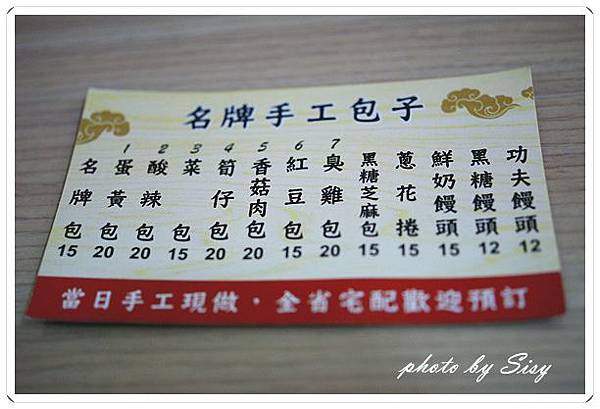 名牌手工包子
1 2 3 4 5 6 7
名牌包
蛋黃包
酸辣包
菜包
筍仔包
香菇肉包
紅豆包
臭雞包
黑糖芝麻包
蔥花捲
鮮奶饅頭
黑糖饅頭
功夫饅頭
15 20 20 15 20 20 15 20 15 15 15 12 12
當日手工現做·全省宅配歡迎預訂
photo by Sisy